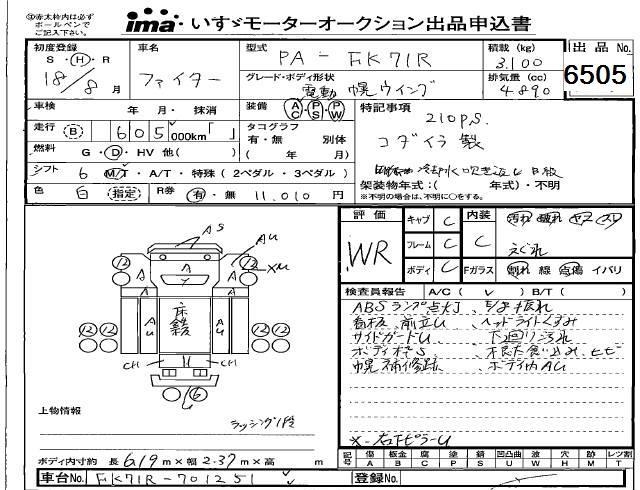 ㊟赤太枠内は必ず
ボールペンで
ご記入下さい。
ima いすゞモーターオークション出品申込書
初度登録 S・Ⓗ・R 18/8月
車名 ファイター
型式 PA-FK71R
積載 (kg) 3,100
出品No. 6505
グレード・ボディ形状 電動幌ウイング
排気量 (cc) 4.890
車検 年 月・抹消
装備 AC PS PW
特記事項 210p.s.
コダイラ製
走行 B 605,000km「 」
タコグラフ 有・無 別体 ( 年 月)
燃料 G・D・HV 他( )
冷却水吹き返し
シフト 6 M/T・A/T・特殊(2ペダル・3ペダル)
架装物年式:( 年式)・不明
※不明の場合は、不明に○をする。
色 白 指定 R券 有・無 11,010円
評価 WR
キャブ C
フレーム C
ボディ C
内装 C
汚れ 破れ ヤブ スリ
えぐれ
Fガラス 割れ 線 点傷 イバリ
検査員報告 A/C( ✓ ) B/T( )
ABSランプ点灯、
看板、前立U、ヘッドライトくすみ
サイドガードU、下廻り汚れ
ボディ枠S、
幌補修跡、ボディ内AU
※-右下ピラーU
AS
AU
XM
12
A
A
A
12
12
12
AU
床鉄
AU
12
CH
CH
U
6
上物情報
ラッシング1段
ボディ内寸約 長 6.19m×幅 2.37m×高 m
記号 傷A 板金B 腐C 塗P 錆S 凹凸曲U 波W 穴H 跡M レンズ割T
車台No. FK71R-701251
登録No.